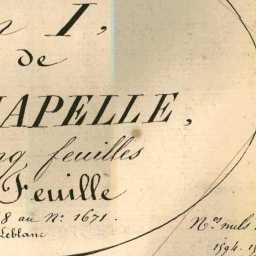 I,
de
HAPELLE,
feuilles
Feuille
8 au N.º 1671.
Leblanc
N.ºs nuls
1594. 1